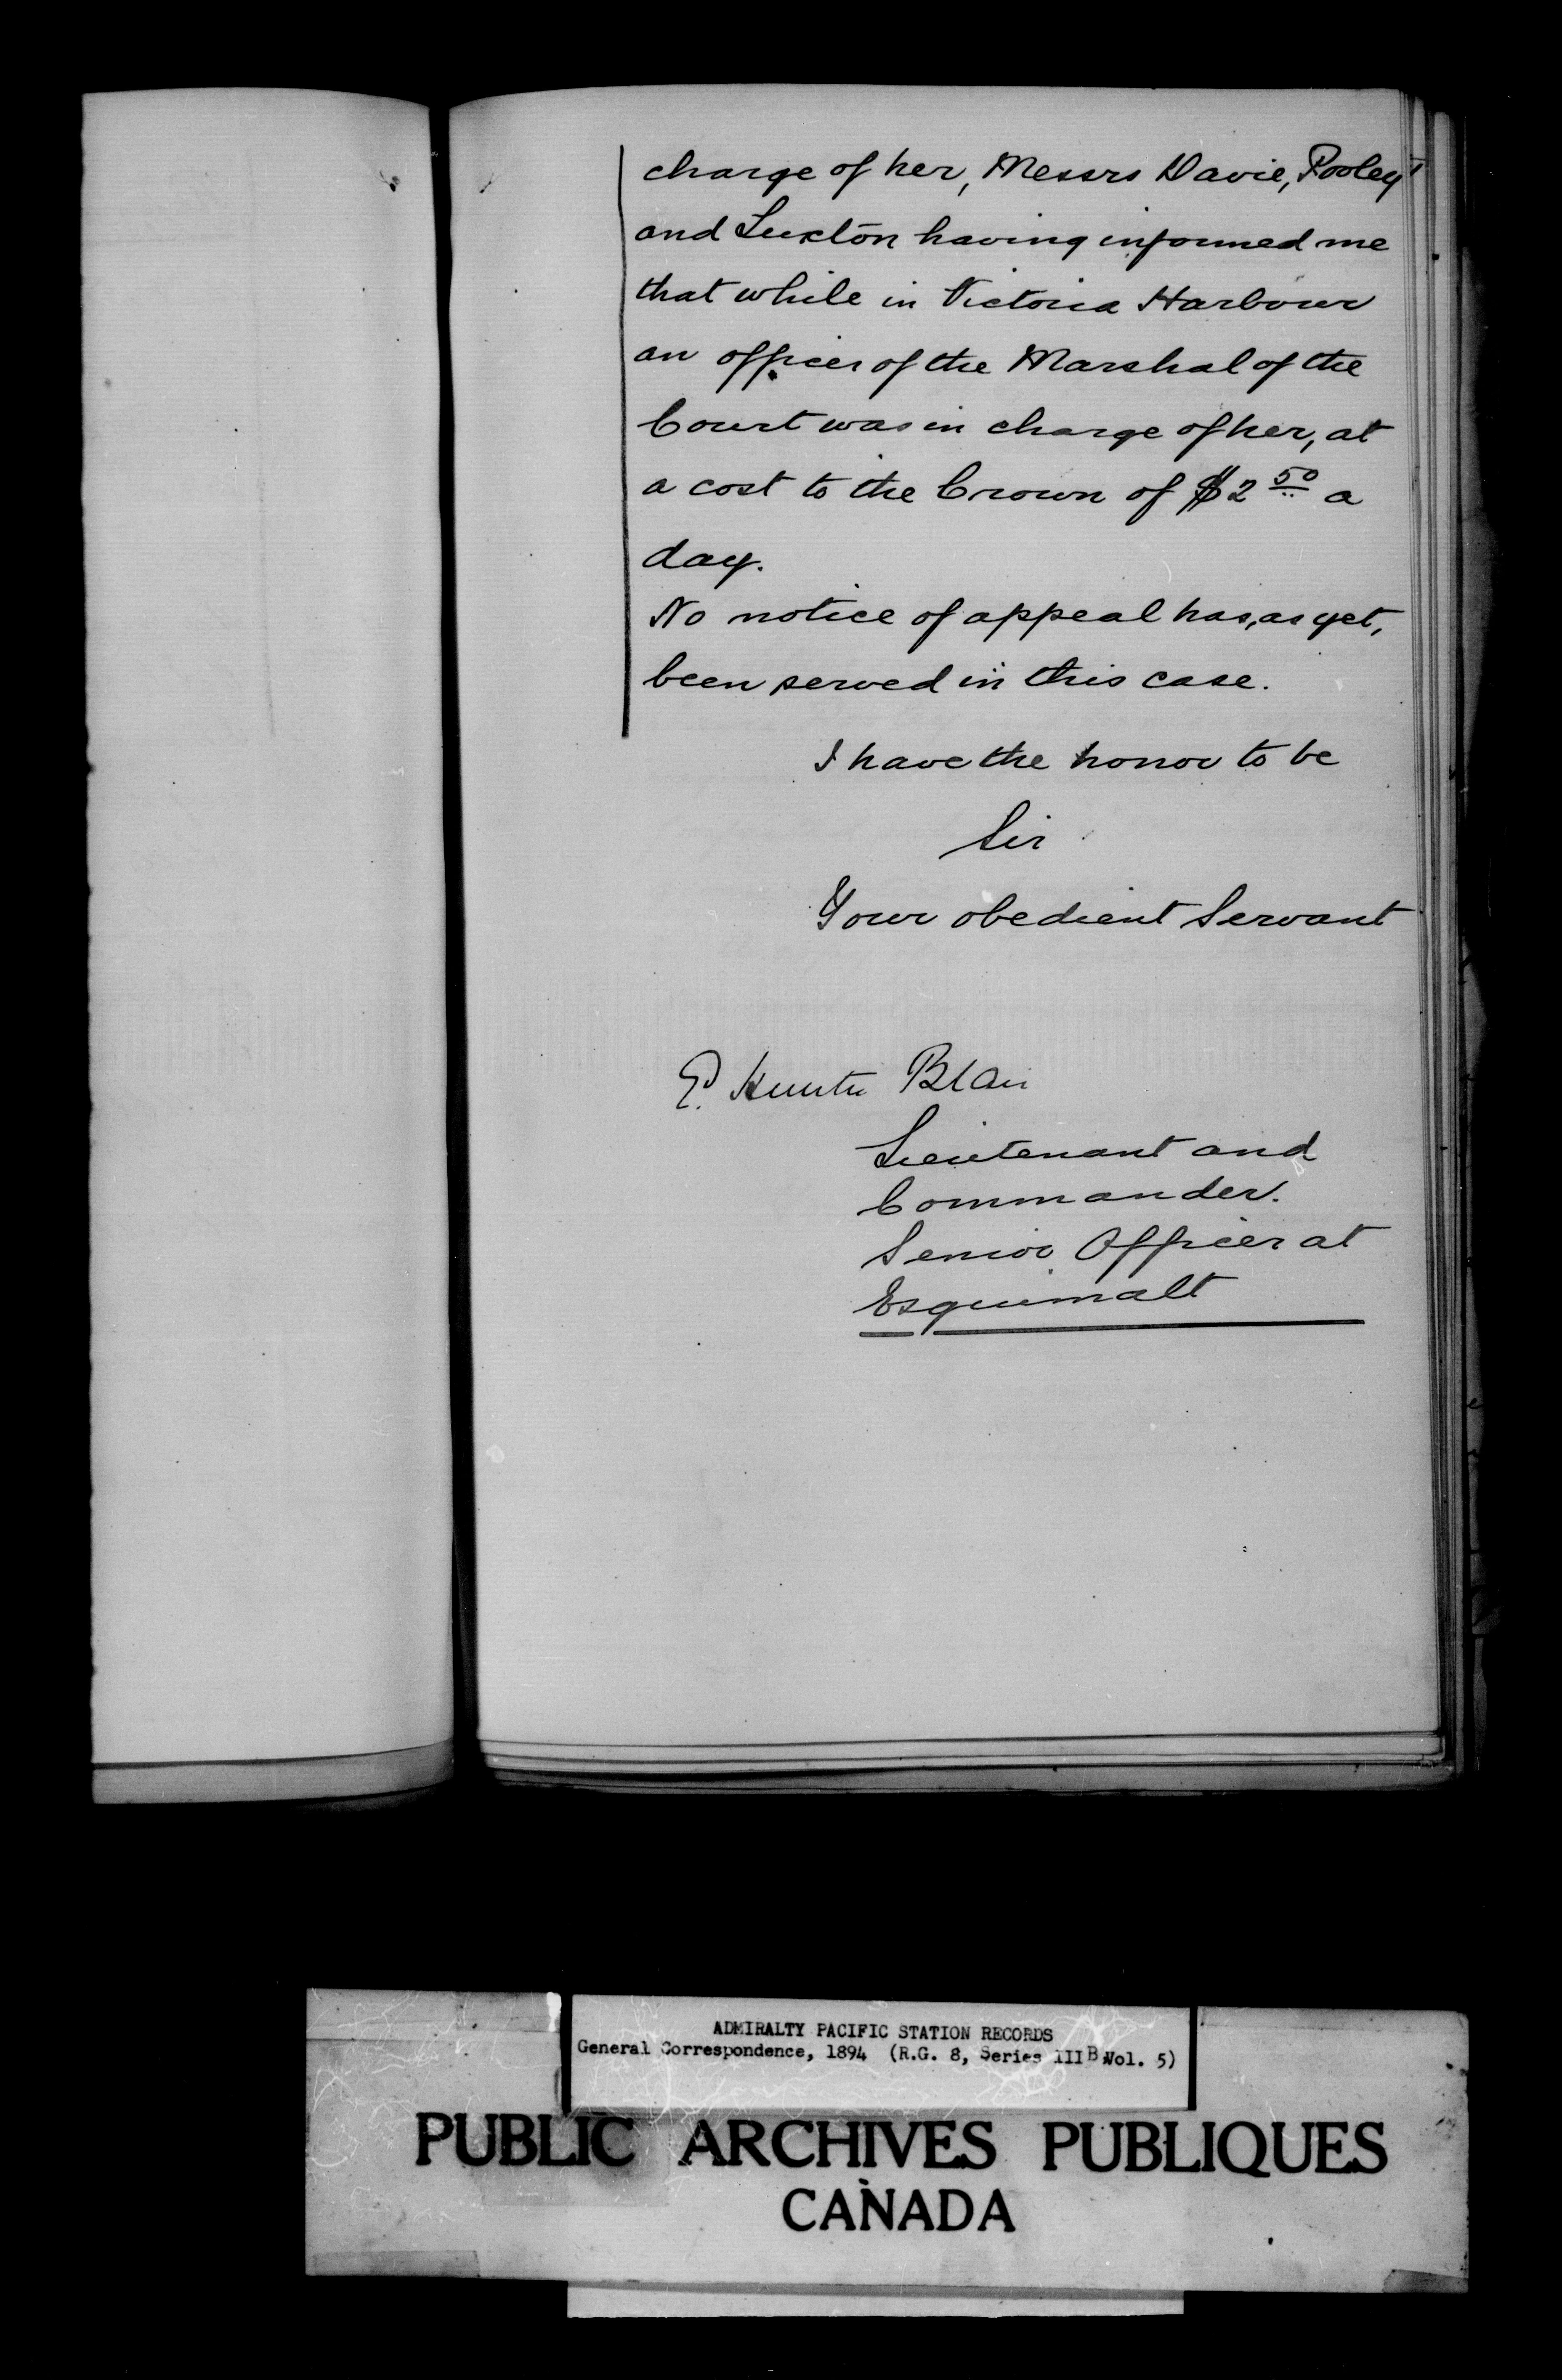 charge of her, Messrs Davie, Pooley
and Luxton having informed me
that while in Victoria Harbour
an officer of the Marshal of the
Court was in charge of her, at
a cost to the Crown of $2 50 a
day.
No notice of appeal has, as yet,
been served in this case.
I have the honor to be
Sir
Your obedient Servant
E. Hunter Blair
Lieutenant and
Commander.
Senior Officer at
Esquimalt
ADMIRALTY PACIFIC STATION RECORDS
General Correspondence, 1894 (R.G. 8, Series III B Vol. 5)
PUBLIC ARCHIVES PUBLIQUES
CANADA